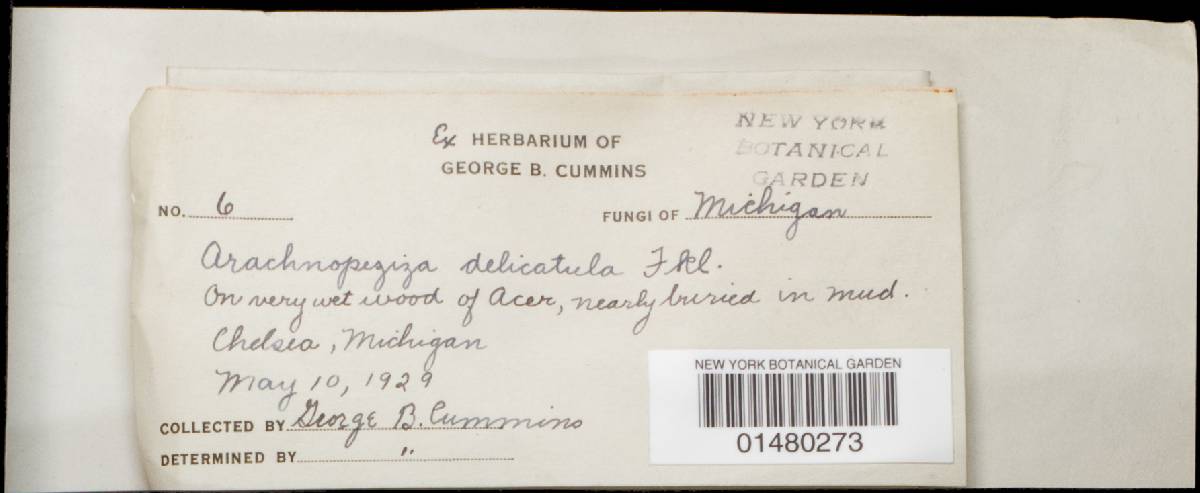 Ex HERBARIUM OF
GEORGE B. CUMMINS
NEW YORK
BOTANICAL
GARDEN
NO. 6
FUNGI OF Michigan
Arachnopeziza delicatula Fkl.
On very wet wood of Acer, nearly buried in mud.
Chelsea, Michigan
May 10, 1929
COLLECTED BY George B. Cummins
DETERMINED BY "
NEW YORK BOTANICAL GARDEN
01480273